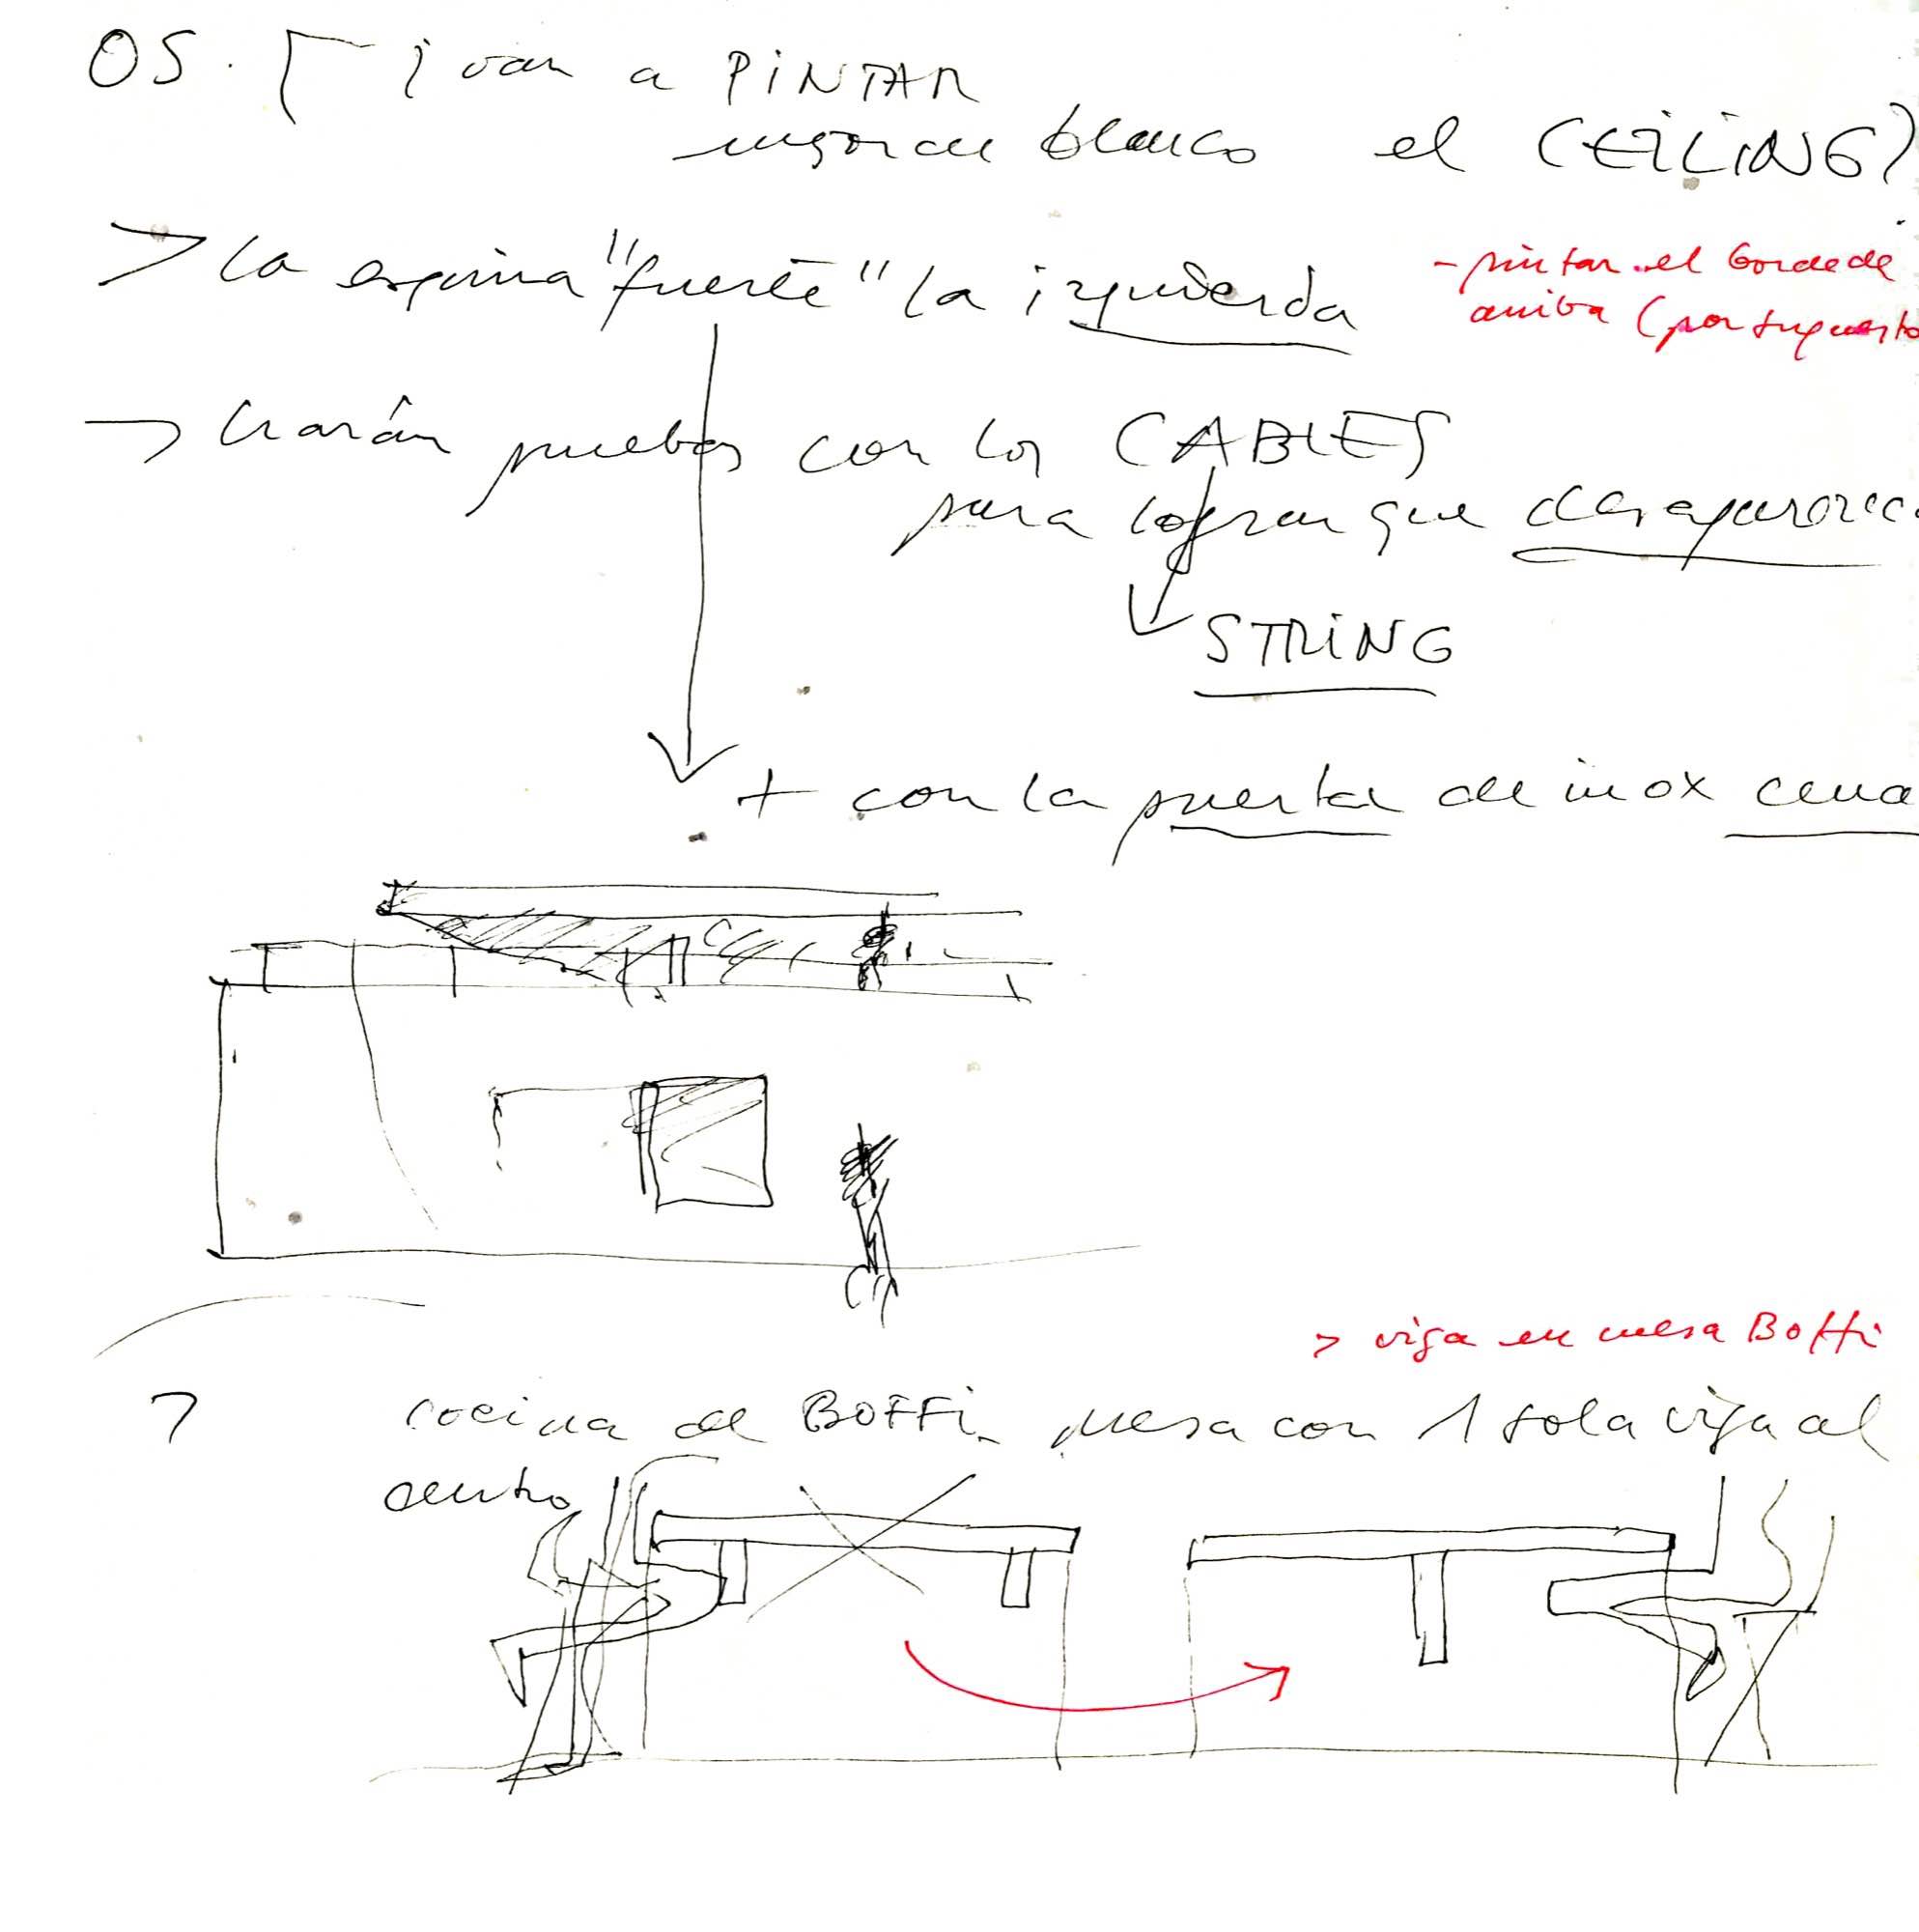 OS. ¿ van a PINTAR
mejor de blanco el CEILING?
> la esquina "fuerte" la izquierda
- pintar el borde de
arriba (por supuesto
→ harán pruebas con los CABLES
para lograr que desaparezca
STRING
+ con la puerta de inox
> viga en mesa Boffi
? cocina de BOFFi. mesa con 1 sola viga al
centro